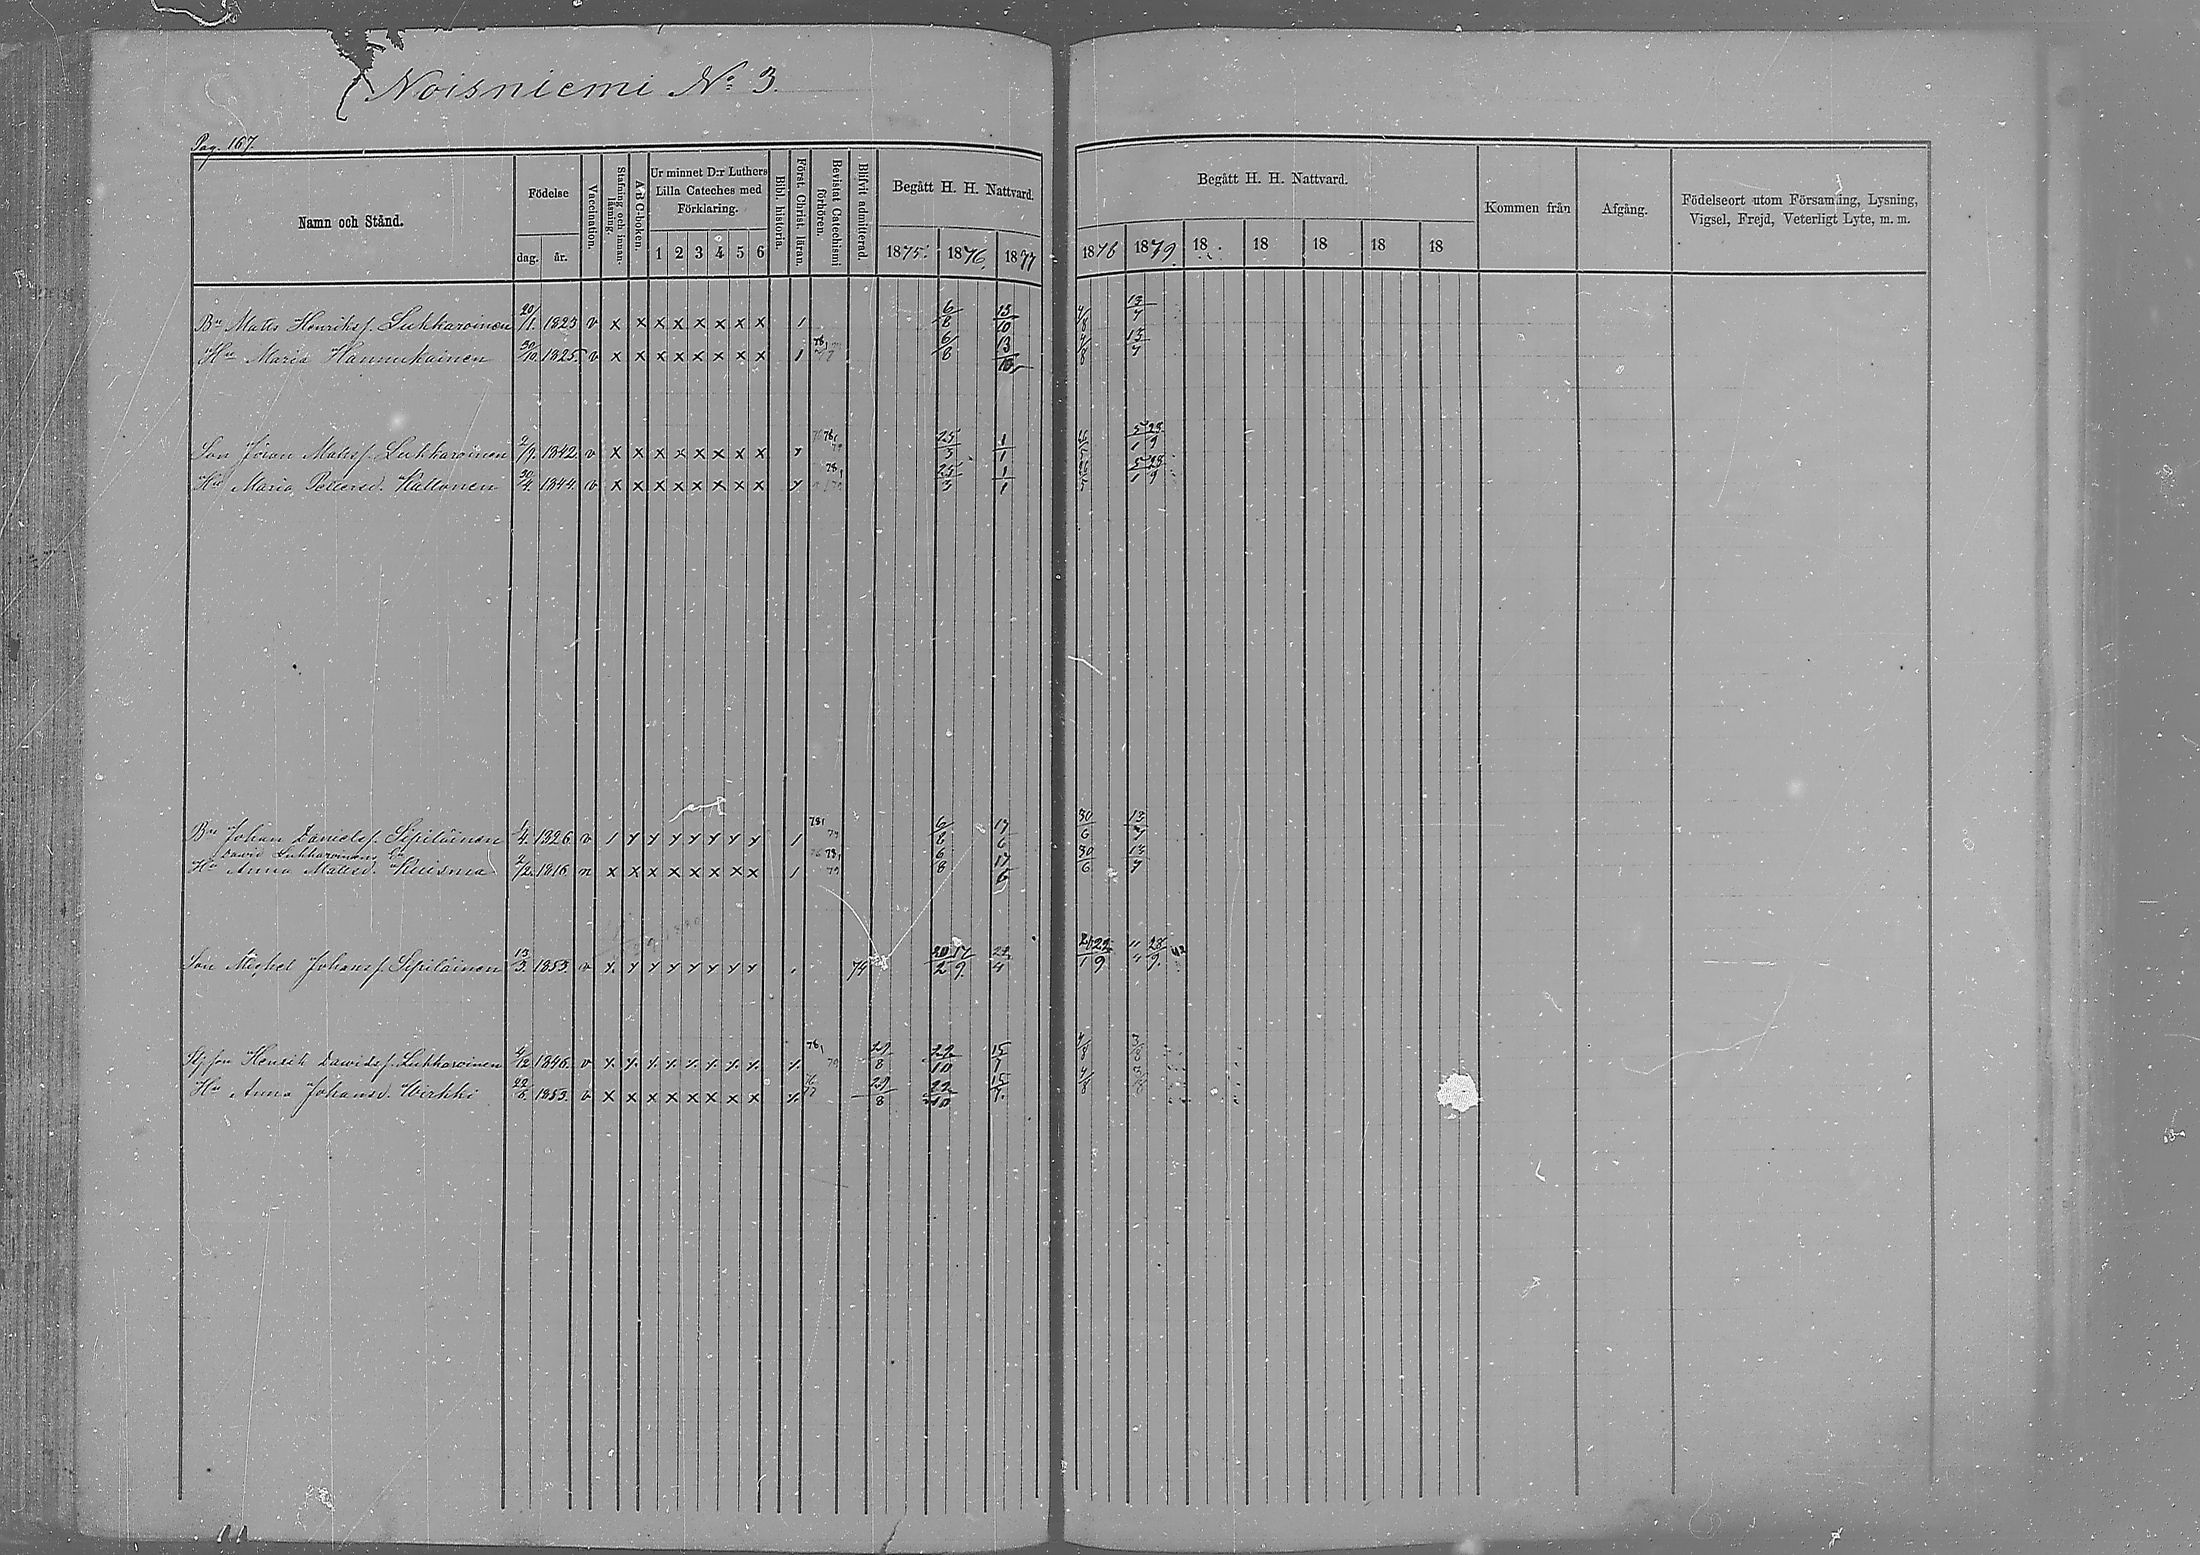 Noisniemi No: 3.
Pag. 167.
Namn och Stånd.
Födelse
dag. år.
Vaccination.
Stafning och innanläsning.
A B C-boken.
Ur minnet D:r Luthers Lilla Cateches med Förklaring.
1 2 3 4 5 6
Bibl. historia.
Först. Christ. läran.
Bevistat Catechismi förhören.
Blifvit admitterad.
Begått H. H. Nattvard.
1875. 1876. 1877
Begått H. H. Nattvard.
1878 1879. 18 18 18 18 18
Kommen från
Afgång.
Födelseort utom Församling, Lysning, Vigsel, Frejd, Veterligt Lyte, m. m.
Bn Matts Henrikss. Lukkaroinen 20/1. 1823 v x x x x x x x x 1 6/8 13/10 4/8 13/7
Hu Maria Hannukainen 30/10. 1825. v x x x x x x x x 1 78, 6/8 13/10 4/8 13/7
Son Jöran Mattss. Lukkaroinen 2/9. 1842. v x x x x x x x x 78, 79 25/3 1/1 5/1 28/9
Hu Maria Pettersd. Hallonen 30/4. 1844. v x x x x x x x x 78, 25/3 1/1 5/1 28/9
Bn Johan Daniels. Sipiläinen 1/4. 1826. v 1 x x x x x x x 1 78, 79 6/8 17/6 30/6 13/7
David Lukkaroinens Ea
Hu Anna Mattsd. Kuisma 2/2. 1816 n x x x x x x x x 1 78, 79 6/8 17/6 30/6 13/7
Son Michel Johanss. Sipiläinen 13/3. 1853. v x x x x x x x x 74 20/2 17/9. 22/4 22/9 28/9.
Stjfson Henrik Davidss. Lukkaroinen 2/12 1846. v x x x x x x x x x 78, 79 29/8 22/10 15/7 4/8 3/8
Hu Anna Johansd. Wirkki 22/6. 1853. v x x x x x x x x x 76 77 29/8 22/10 15/7. 4/8